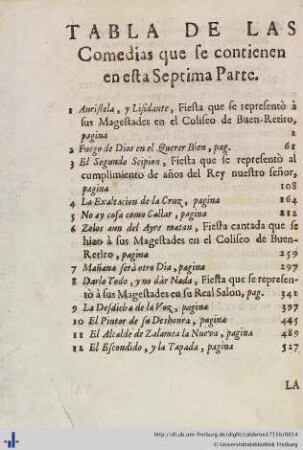 TABLA DE LAS
Comedias que se contienen
en esta Septima Parte.
1 Auristela, y Lisidante, Fiesta que se representò à
sus Magestades en el Coliseo de Buen-Retiro,
pagina 1
2 Fuego de Dios en el Querer Bien, pag. 61
3 El Segundo Scipion, Fiesta que se representò al
cumplimiento de años del Rey nuestro señor,
pagina 108
4 La Exaltacion de la Cruz, pagina 164
5 No ay cosa como Callar, pagina 212
6 Zelos aun del Ayre matan, Fiesta cantada que se
hizo à sus Magestades en el Coliseo de Buen-
Retiro, pagina 259
7 Mañana serà otro Dia, pagina 297
8 Darlo Todo, y no dàr Nada, Fiesta que se represen-
tò à sus Magestades en su Real Salon, pag. 342
9 La Desdicha de la Voz, pagina 397
10 El Pintor de su Deshonra, pagina 445
11 El Alcalde de Zalamea la Nueva, pagina 489
12 El Escondido, y la Tapada, pagina 527
LA
http://dl.ub.uni-freiburg.de/diglit/calderon1715b/0014
© Universitätsbibliothek Freiburg